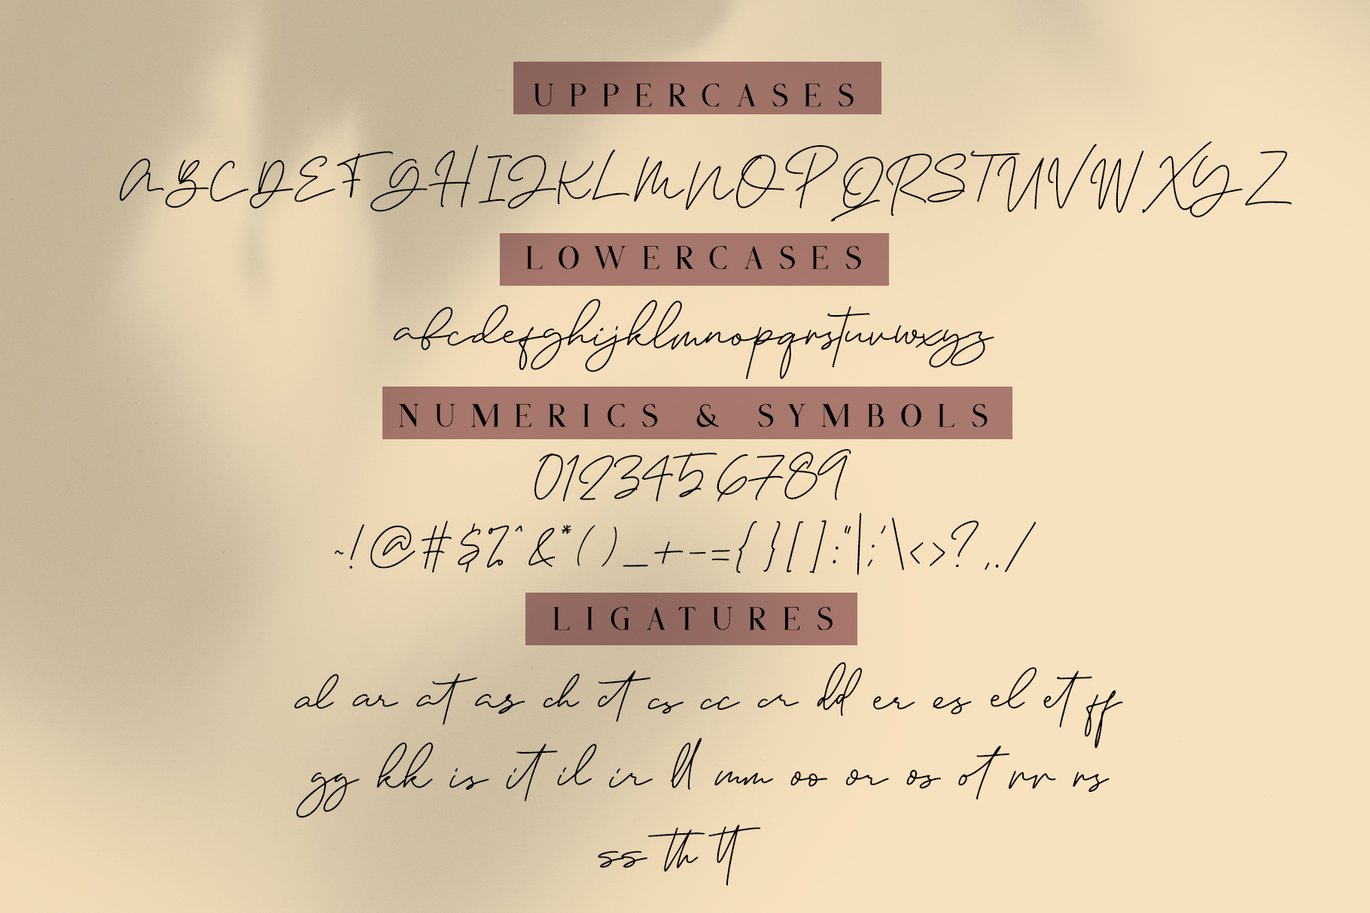 UPPERCASES
ABCDEFGHIJKLMNOPQRSTUVWXYZ
LOWERCASES
abcdefghijklmnopqrstuvwxyz
NUMERICS & SYMBOLS
0123456789
~!@#$%^&*()_+-={}[]:"|;'\<>?,./
LIGATURES
al ar at as ch ct cs cc cr dd er es el et ff
gg kk is it il ir ll mm oo or os ot rr rs
ss th tt